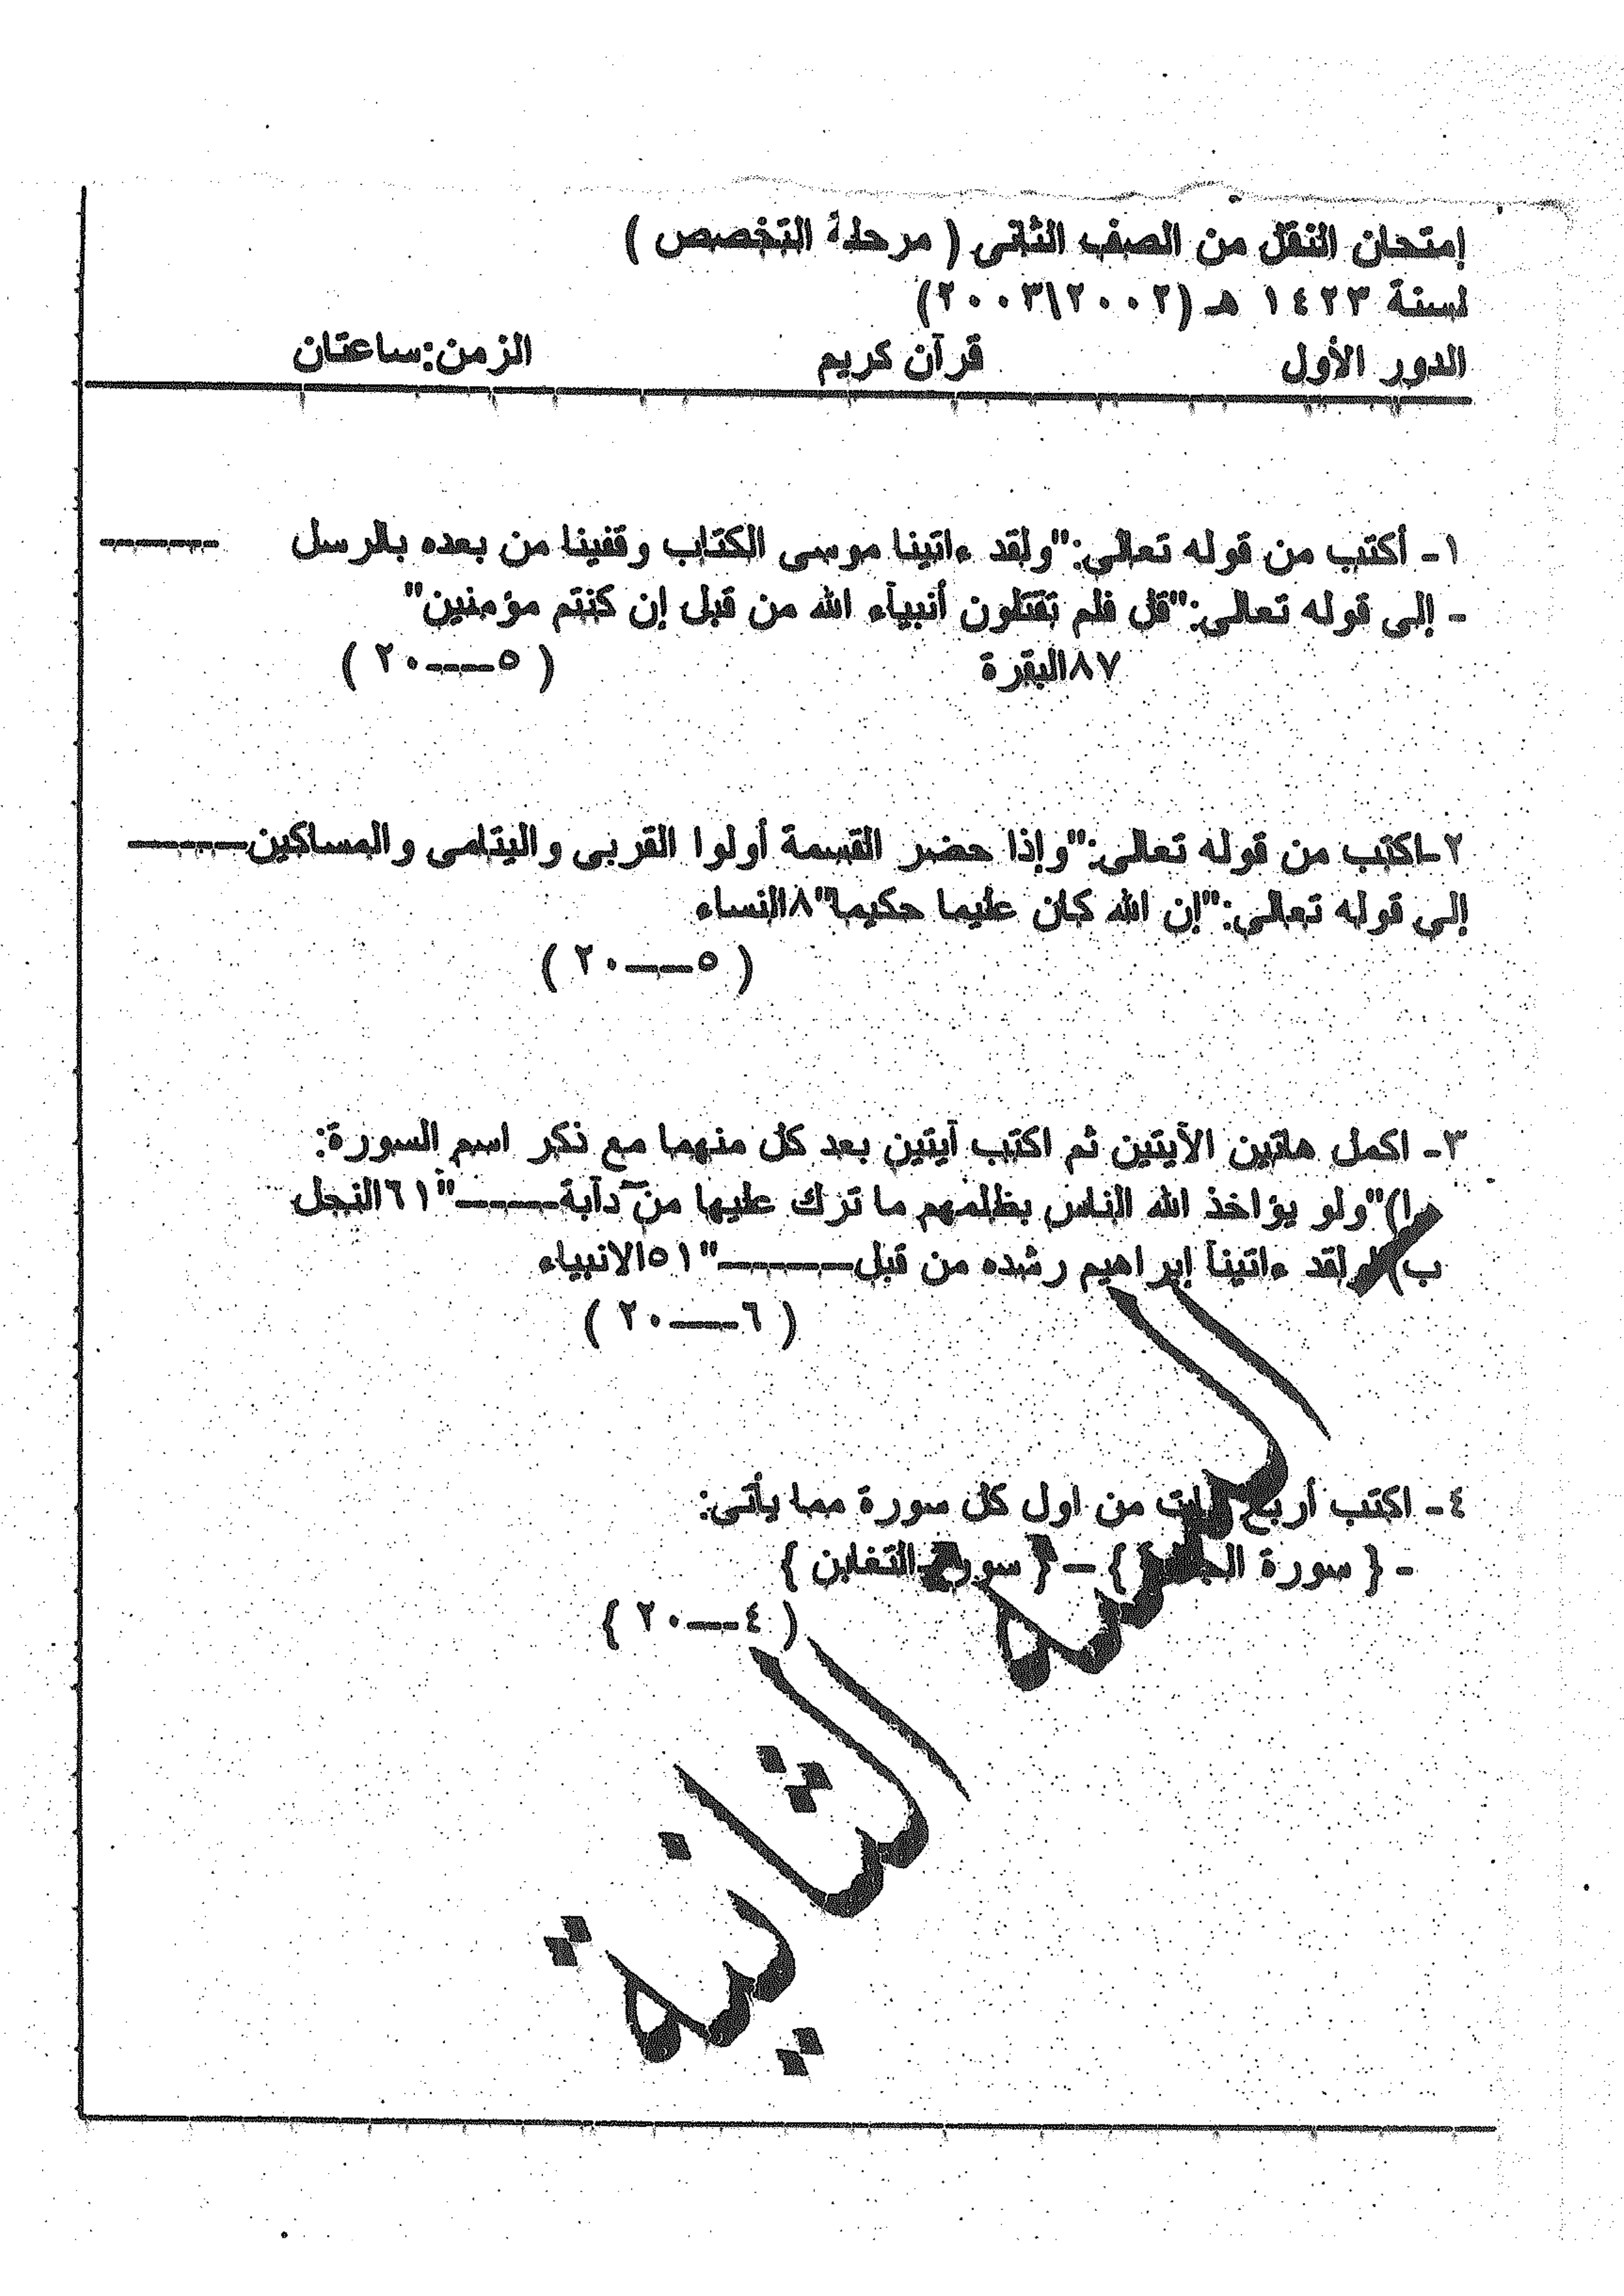 إمتحان النقل من الصف الثانى ( مرحلة التخصص )
لسنة ١٤٢٣ هـ (٢٠٠٢\٢٠٠٣)
الدور الأول قرآن كريم الزمن:ساعتان
١- أكتب من قوله تعالى:"ولقد ءاتينا موسى الكتاب وقفينا من بعده بالرسل ------
- إلى قوله تعالى:"قل فلم تقتلون أنبيآء الله من قبل إن كنتم مؤمنين"
٨٧البقرة ( ٥----٢٠ )
٢-اكتب من قوله تعالى:"وإذا حضر القسمة أولوا القربى واليتامى والمساكين-----
إلى قوله تعالى:"إن الله كان عليما حكيما"٨النساء
( ٥----٢٠ )
٣- اكمل هاتين الآيتين ثم اكتب آيتين بعد كل منهما مع ذكر اسم السورة:
ا)"ولو يؤاخذ الله الناس بظلمهم ما ترك عليها من دآبة-----"٦١النحل
ب) ولقد ءاتينآ إبراهيم رشده من قبل------"٥١الانبياء
( ٦----٢٠ )
٤- اكتب أربع من اول كل سورة مما يأتى:
- { سورة } – { سورة التغابن }
( ٤---٢٠ }
السنة الثانية